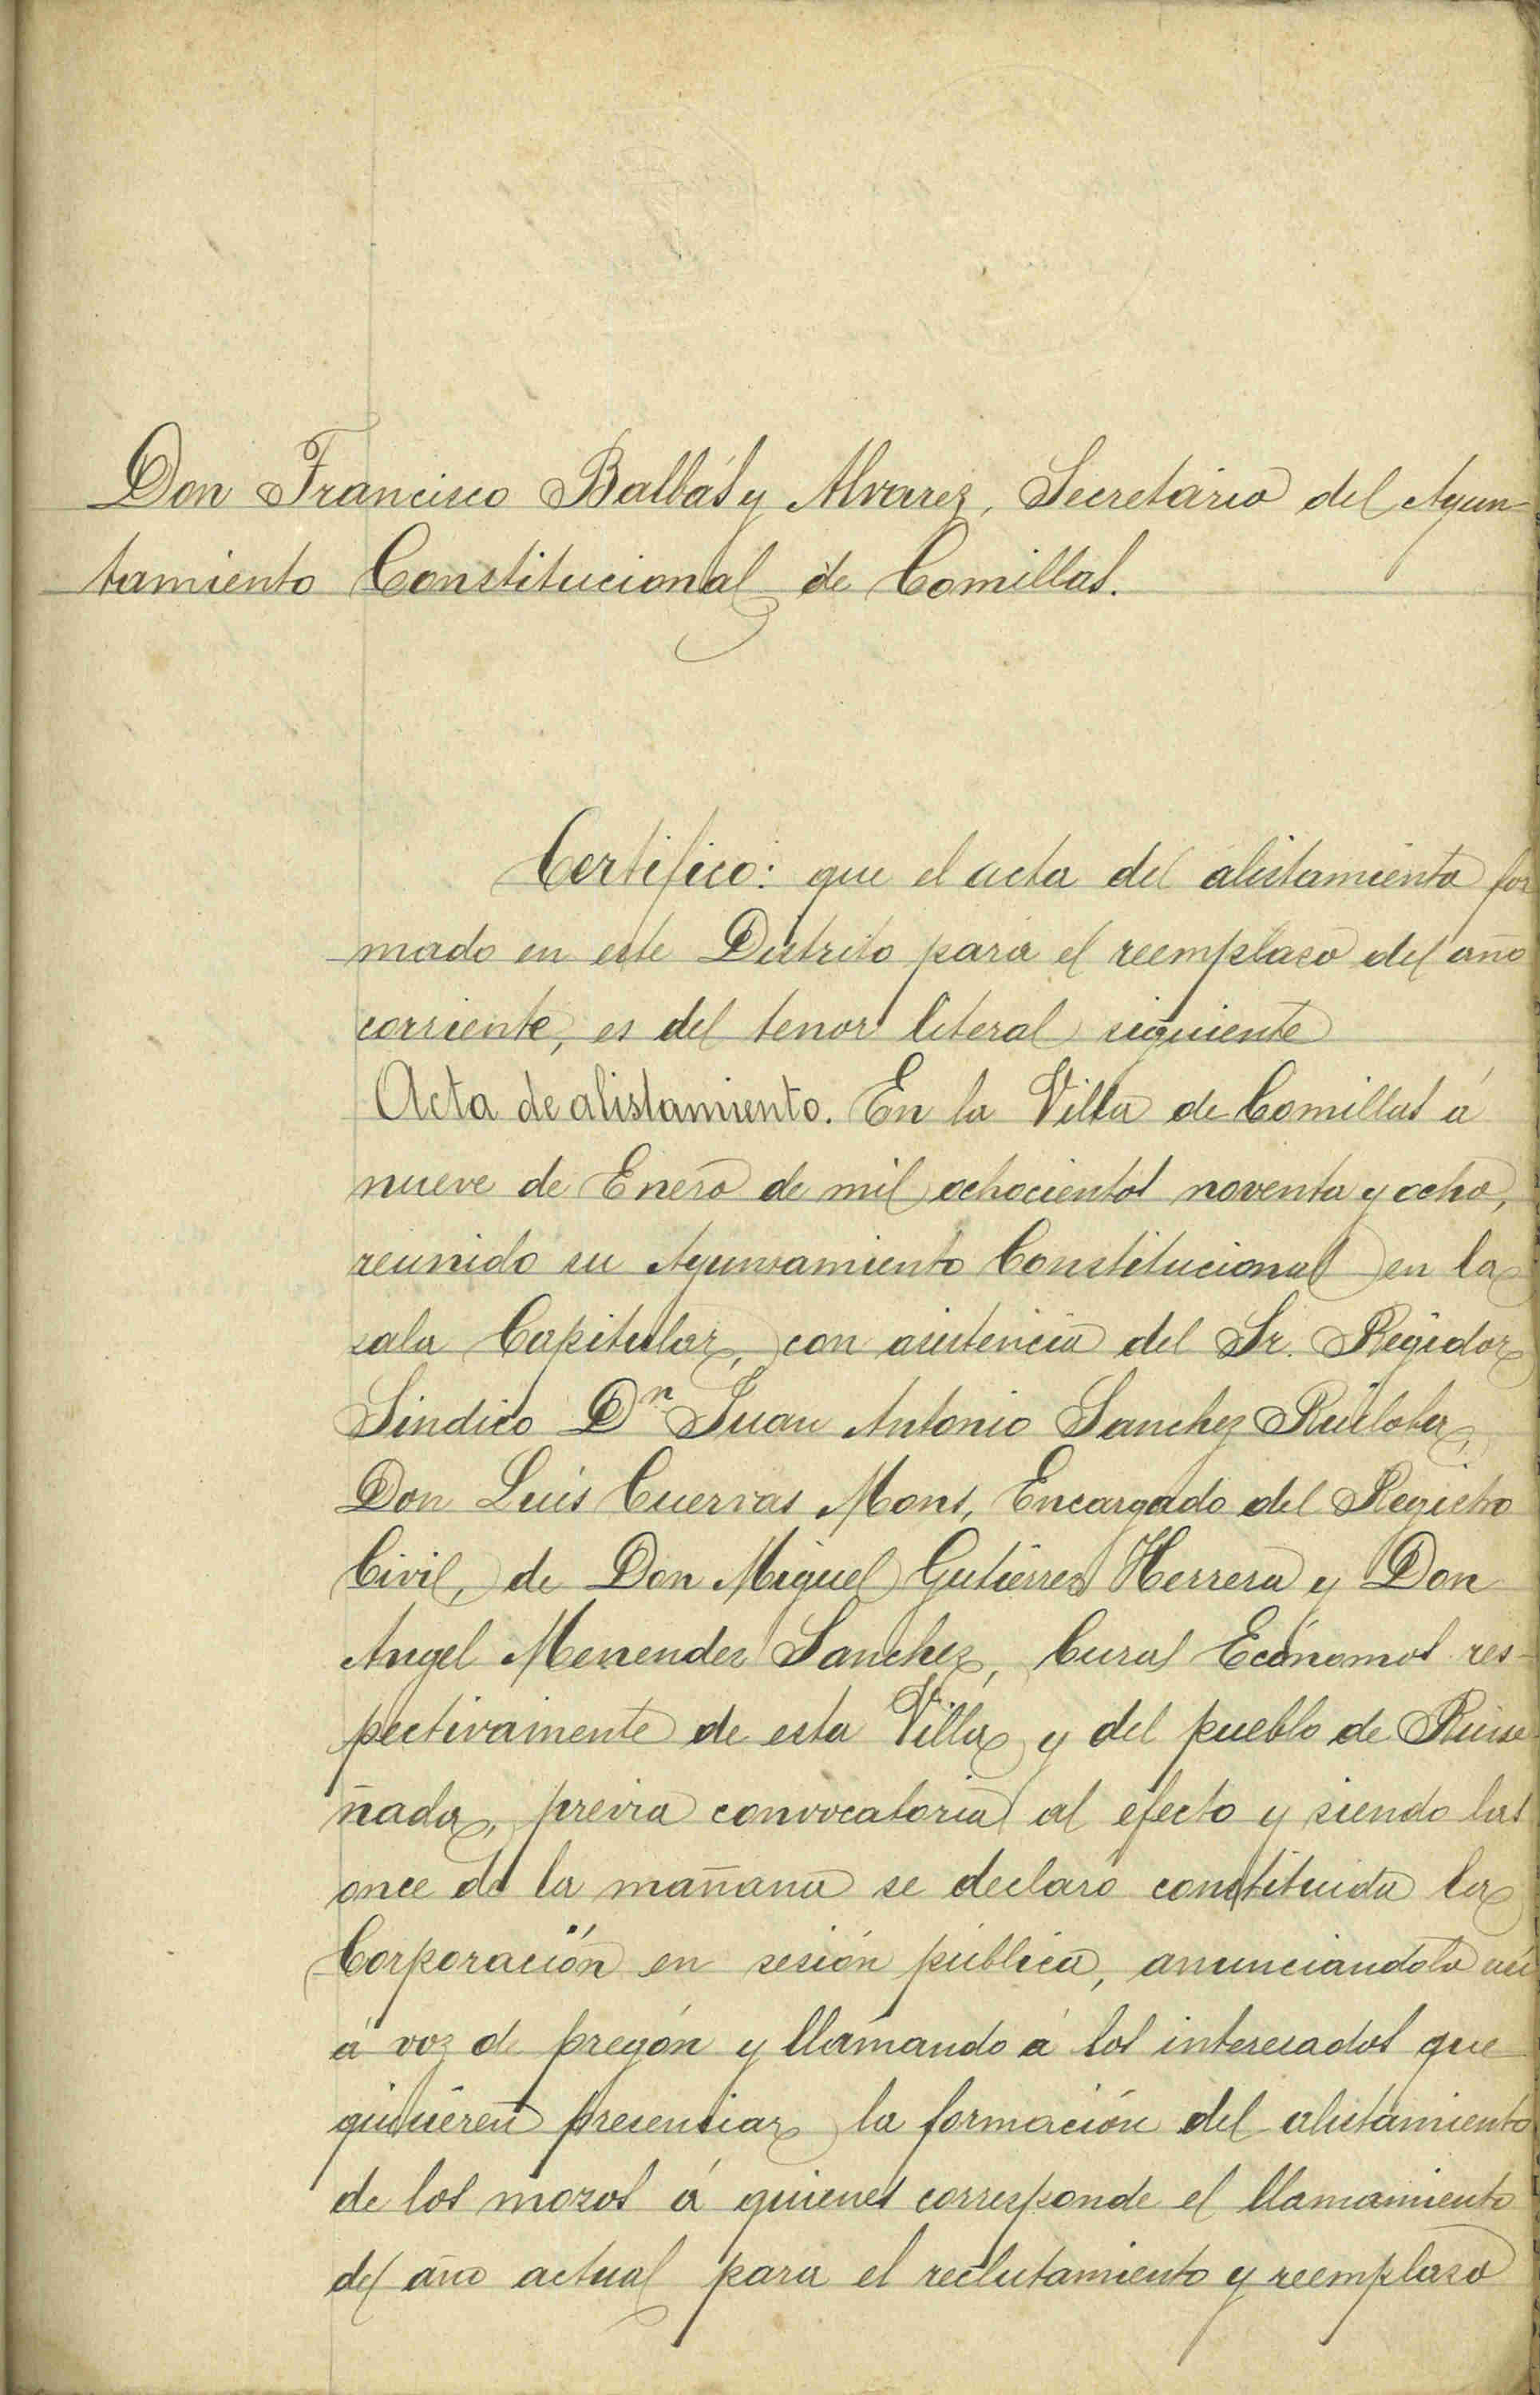 Don Francisco Balbás y Alvarez, Secretário del Ayun-
tamiento Constitucional de Comillas.
Certifico: que el acta del alistamiento for
mado en este Distrito para el reemplazo del año
corriente, es del tenor literal siguiente
Acta de alistamiento. En la Villa de Comillas á
nueve de Enero de mil ochocientos noventa y ocho,
reunido su Ayuntamiento Constitucional en la
sala Capitular, con asistencia del Sr. Regidor
Sindico Dn Juan Antonio Sanchez Ruiloba,
Don Luis Cuervas Mons, Encargado del Registro
Civil, de Don Miguel Gutierrez Herrera y Don
Angel Menendez Sanchez, Curas Ecónomos res-
pectivamente de esta Villa y del pueblo de Ruise-
ñada, previa convocatoria al efecto y siendo las
once de la mañana se declaró constituida la
Corporación en sesión pública, anunciandolo así
á voz de pregón y llamando á los interesados que
quisieren presenciar la formación del alistamiento
de los mozos á quienes corresponde el llamamiento
del año actual para el reclutamiento y reemplazo